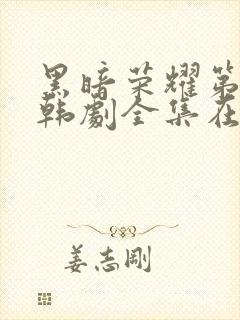 黑暗荣耀第
韩剧全集在
姜志刚